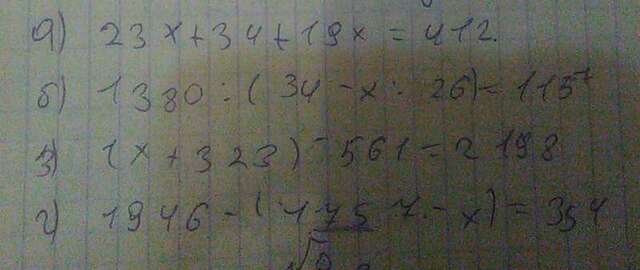 а) 23x+34+19x=412.
б) 1380:(34-x:26)=115
з) (x+323)-561=2198
г) 1946-(1757-x)=354